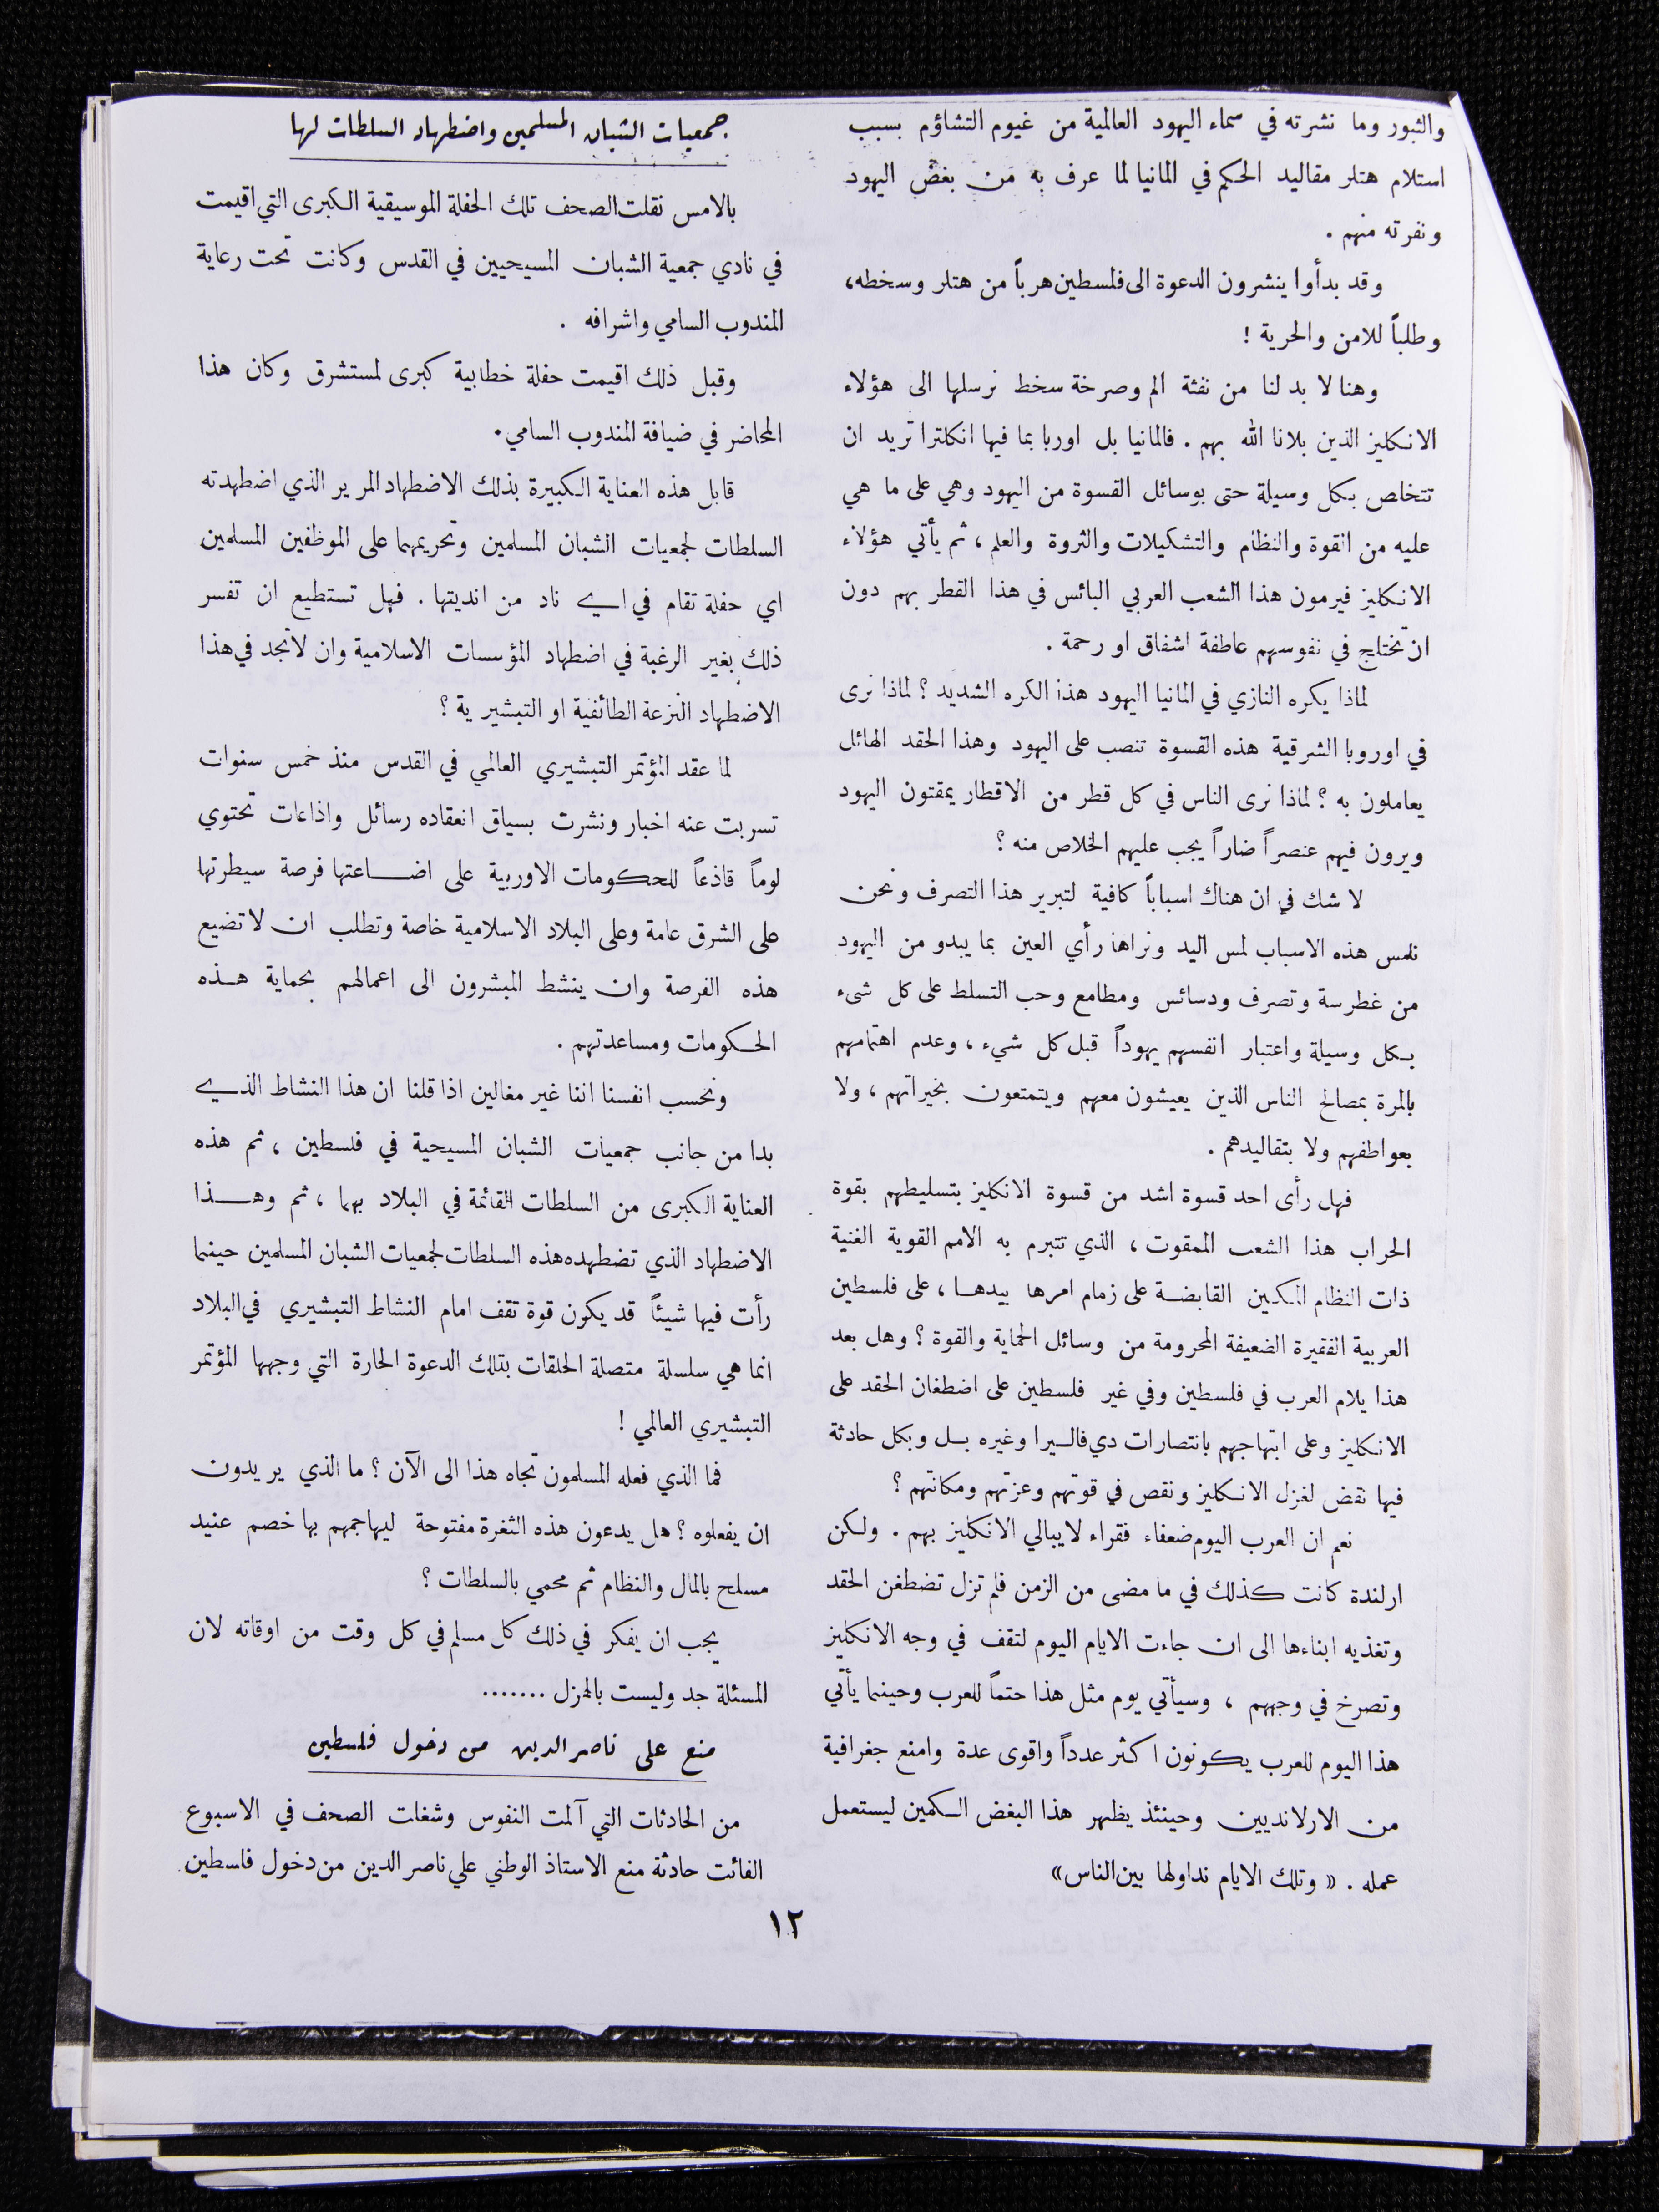 والثبور وما نشرته في سماء اليهود العالمية من غيوم التشاؤم بسبب
استلام هتلر مقاليد الحكم في المانيا لما عرف به من بغض اليهود
ونفرته منهم .
وقد بدأوا ينشرون الدعوة الى فلسطين هرباً من هتلر وسخطه،
وطلباً للامن والحرية !
وهنا لا بد لنا من نفثة الم وصرخة سخط نرسلها الى هؤلاء
الانكليز الذين بلانا الله بهم . فالمانيا بل اوربا بما فيها انكلترا تريد ان
تتخلص بكل وسيلة حتى بوسائل القسوة من اليهود وهي على ما هي
عليه من القوة والنظام والتشكيلات والثروة والعلم ، ثم يأتي هؤلاء
الانكليز فيرمون هذا الشعب العربي البائس في هذا القطر بهم دون
ان تختلج في نفوسهم عاطفة اشفاق او رحمة .
لماذا يكره النازي في المانيا اليهود هذا الكره الشديد ؟ لماذا نرى
في اوروبا الشرقية هذه القسوة تنصب على اليهود وهذا الحقد الهائل
يعاملون به ؟ لماذا نرى الناس في كل قطر من الاقطار يمقتون اليهود
ويرون فيهم عنصراً ضاراً يجب عليهم الخلاص منه ؟
لا شك في ان هناك اسباباً كافية لتبرير هذا التصرف ونحن
نلمس هذه الاسباب لمس اليد ونراها رأي العين بما يبدو من اليهود
من غطرسة وتصرف ودسائس ومطامع وحب التسلط على كل شىء
بكل وسيلة واعتبار انفسهم يهوداً قبل كل شيء ، وعدم اهتمامهم
بالمرة بمصالح الناس الذين يعيشون معهم ويتمتعون بخيراتهم ، ولا
بعواطفهم ولا بتقاليدهم .
فهل رأى احد قسوة اشد من قسوة الانكليز بتسليطهم بقوة
الحراب هذا الشعب الممقوت ، الذي تتبرم به الامم القوية الغنية
ذات النظام المكين القابضة على زمام امرها بيدها ، على فلسطين
العربية الفقيرة الضعيفة المحرومة من وسائل الحماية والقوة ؟ وهل بعد
هذا يلام العرب في فلسطين وفي غير فلسطين على اضطغان الحقد على
الانكليز وعلى ابتهاجهم بانتصارات دي فاليرا وغيره بل وبكل حادثة
فيها نقض لغزل الانكليز ونقص في قوتهم وعزتهم ومكانتهم ؟
نعم ان العرب اليوم ضعفاء فقراء لا يبالي الانكليز بهم . ولكن
ارلندة كانت كذلك في ما مضى من الزمن فلم تزل تضطغن الحقد
وتغذيه ابناءها الى ان جاءت الايام اليوم لتقف في وجه الانكليز
وتصرخ في وجههم ، وسيأتي يوم مثل هذا حتماً للعرب وحينما يأتي
هذا اليوم للعرب يكونون اكثر عدداً واقوى عدة وامنع جغرافية
من الارلانديين وحينئذ يظهر هذا البغض الكمين ليستعمل
عمله . « وتلك الايام نداولها بين الناس»
جمعيات الشبان المسلمين واضطهاد السلطات لها
بالامس نقلت الصحف تلك الحفلة الموسيقية الكبرى التي اقيمت
في نادي جمعية الشبان المسيحيين في القدس وكانت تحت رعاية
المندوب السامي واشرافه .
وقبل ذلك اقيمت حفلة خطابية كبرى لمستشرق وكان هذا
المحاضر في ضيافة المندوب السامي .
قابل هذه العناية الكبيرة بذلك الاضطهاد المرير الذي اضطهدته
السلطات لجمعيات الشبان المسلمين وتحريمهما على الموظفين المسلمين
اي حفلة تقام في اي ناد من انديتها . فهل تستطيع ان تفسر
ذلك بغير الرغبة في اضطهاد المؤسسات الاسلامية وان لا تجد في هذا
الاضطهاد النزعة الطائفية او التبشيرية ؟
لما عقد المؤتمر التبشيري العالمي في القدس منذ خمس سنوات
تسربت عنه اخبار ونشرت بسياق انعقاده رسائل واذاعات تحتوي
لوماً قاذعاً للحكومات الاوربية على اضاعتها فرصة سيطرتها
على الشرق عامة وعلى البلاد الاسلامية خاصة وتطلب ان لا تضيع
هذه الفرصة وان ينشط المبشرون الى اعمالهم بحماية هذه
الحكومات ومساعدتهم .
ونحسب انفسنا اننا غير مغالين اذا قلنا ان هذا النشاط الذي
بدا من جانب جمعيات الشبان المسيحية في فلسطين ، ثم هذه
العناية الكبرى من السلطات القائمة في البلاد بهما ، ثم وهذا
الاضطهاد الذي تضطهده هذه السلطات لجمعيات الشبان المسلمين حينما
رأت فيها شيئاً قد يكون قوة تقف امام النشاط التبشيري في البلاد
انما هي سلسلة متصلة الحلقات بتلك الدعوة الحارة التي وجهها المؤتمر
التبشيري العالمي !
فما الذي فعله المسلمون تجاه هذا الى الآن ؟ ما الذي يريدون
ان يفعلوه ؟ هل يدعون هذه الثغرة مفتوحة ليهاجمهم بها خصم عنيد
مسلح بالمال والنظام ثم محمي بالسلطات ؟
يجب ان يفكر في ذلك كل مسلم في كل وقت من اوقاته لان
المسئلة جد وليست بالهزل .......
منع على ناصر الدين من دخول فلسطين
من الحادثات التي آلمت النفوس وشغلت الصحف في الاسبوع
الفائت حادثة منع الاستاذ الوطني علي ناصر الدين من دخول فلسطين
١٢